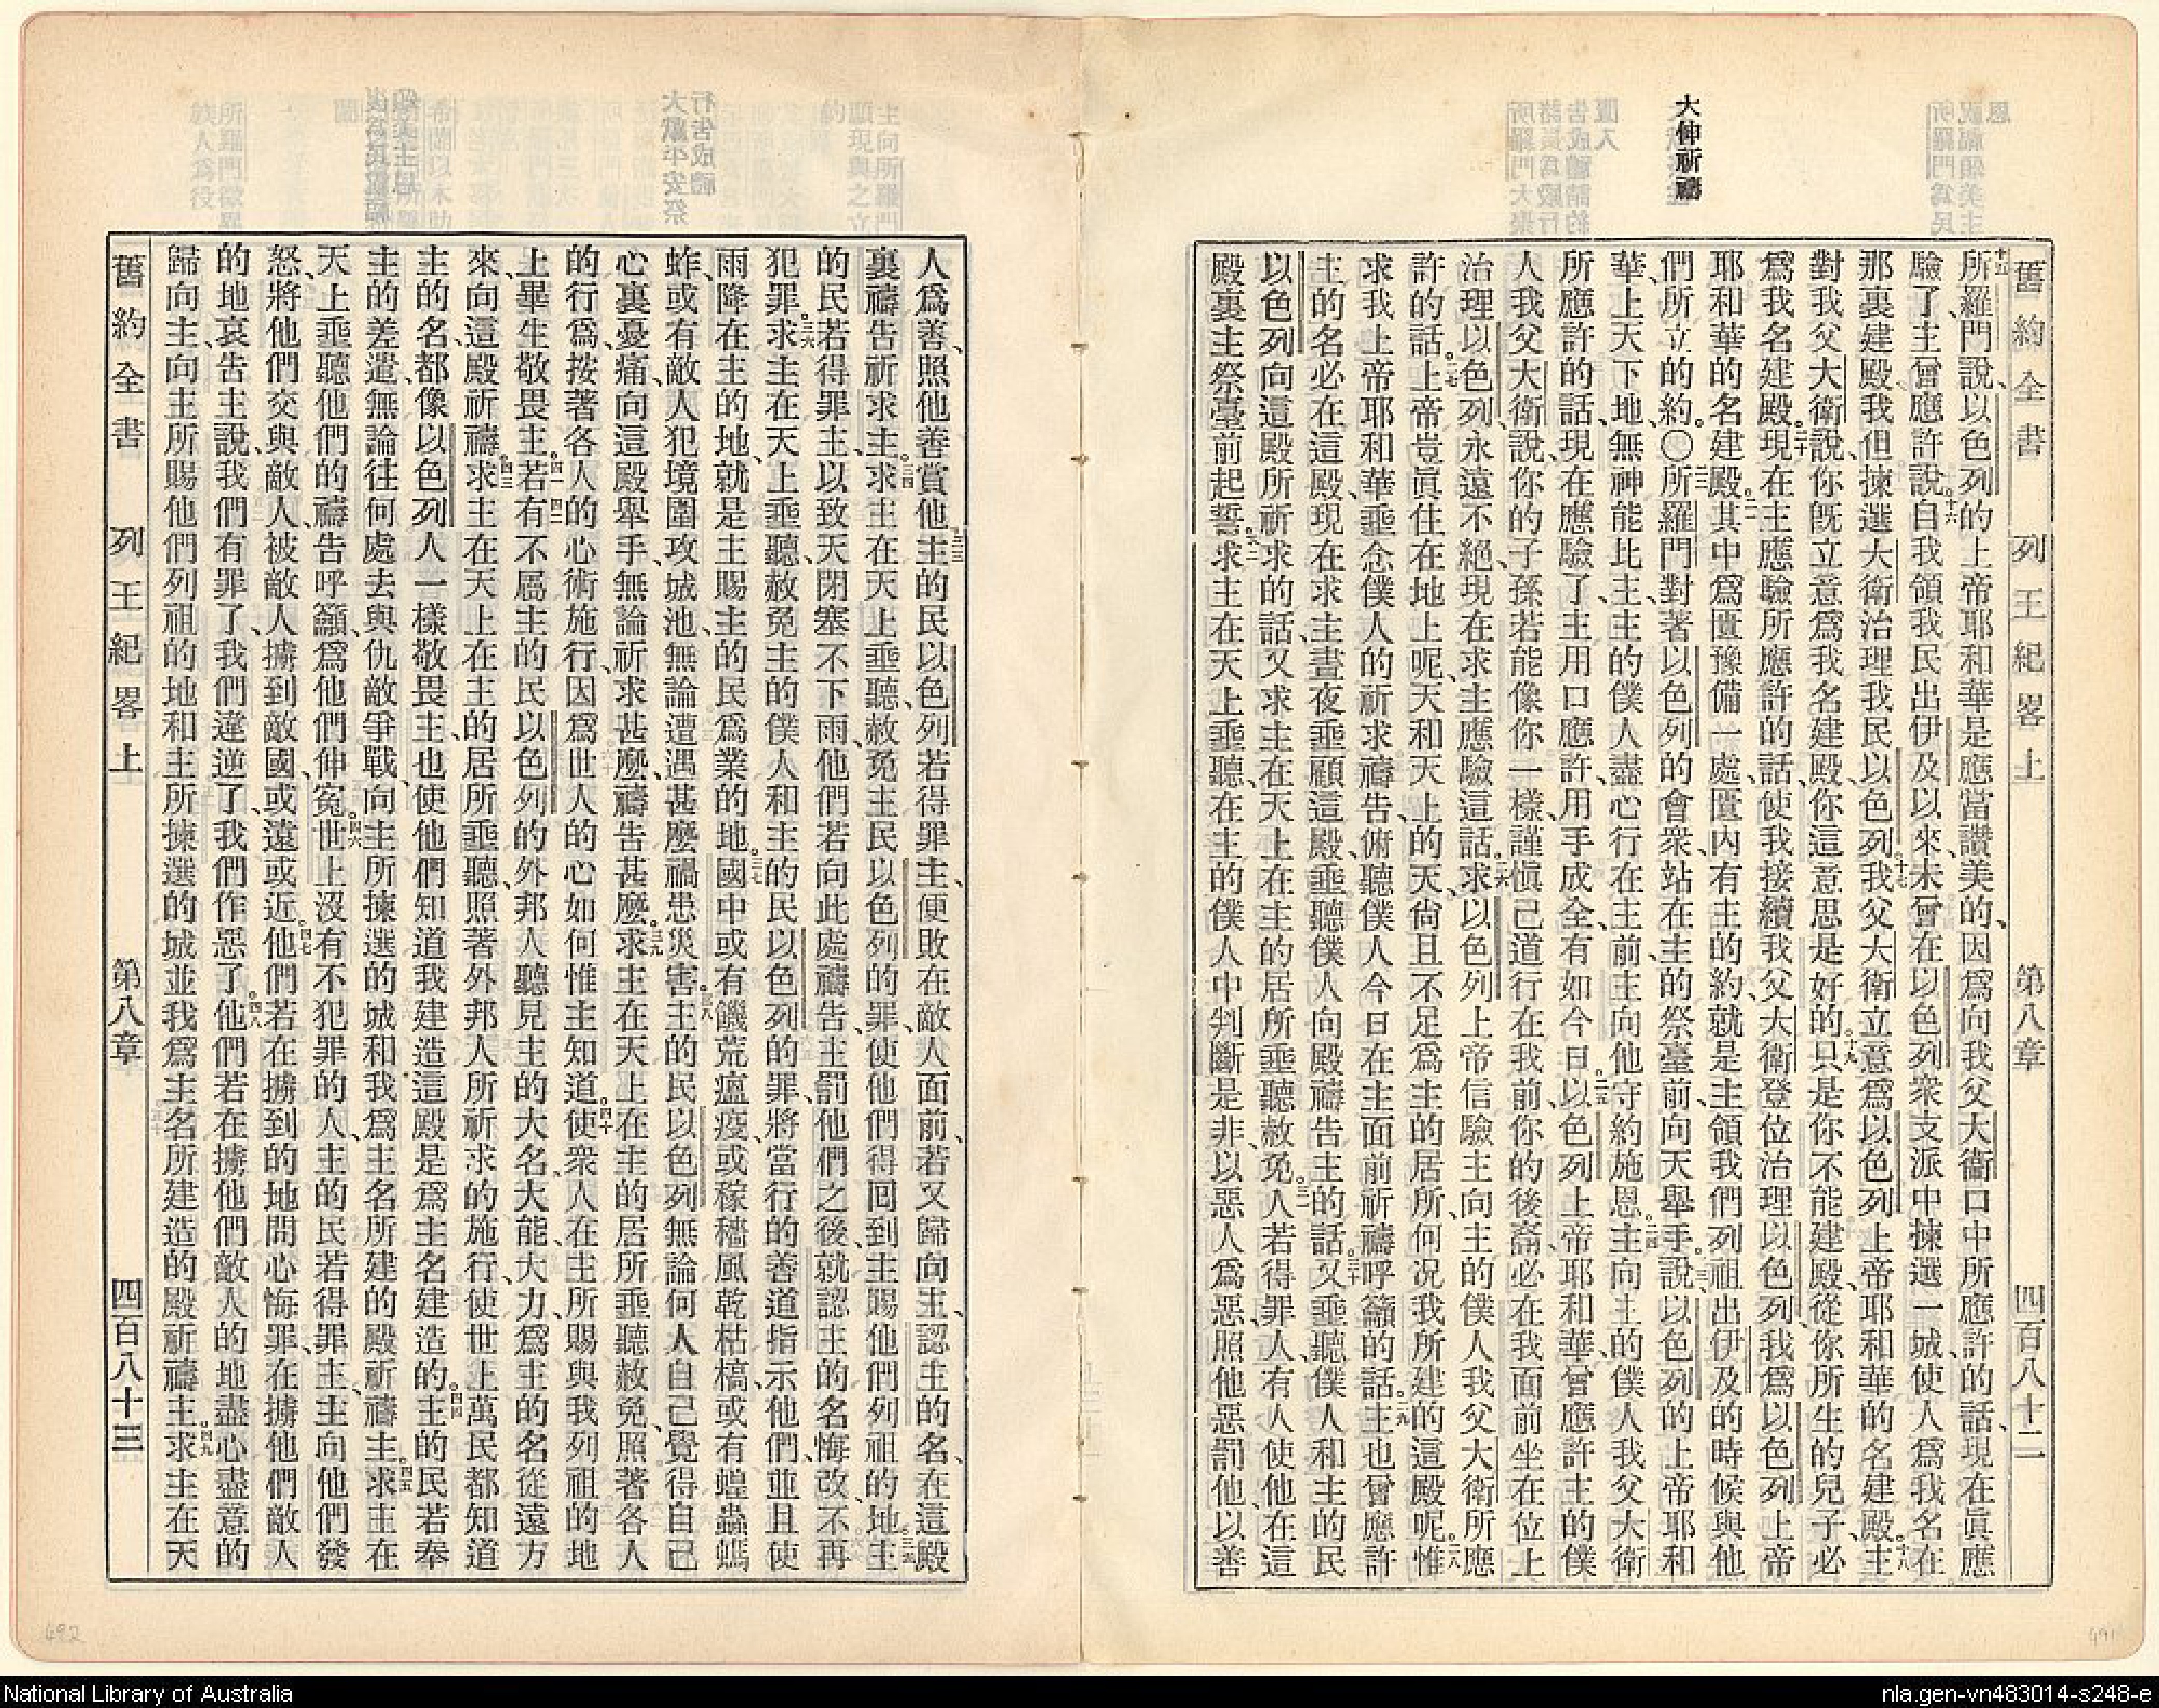 大伸祈禱
舊約全書 列王紀畧上 第八章 四百八十二
十五所羅門說、以色列的上帝耶和華是應當讚美的、因爲向我父大衞口中所應許的話、現在眞應
驗了、主曾應許說、十六自我領我民出伊及以來、未曾在以色列衆支派中揀選一城、使人爲我名在
那裏建殿、我但揀選大衞治理我民以色列。十七我父大衞立意爲以色列上帝耶和華的名建殿。十八主
對我父大衞說、你旣立意爲我名建殿、你這意思是好的。十九只是你不能建殿、從你所生的兒子、必
爲我名建殿。二十現在主應驗所應許的話、使我接續我父大衞登位治理以色列、我爲以色列上帝
耶和華的名建殿。二一其中爲匱豫備一處、匱內有主的約、就是主領我們列祖出伊及的時候與他
們所立的約。〇二二所羅門對著以色列的會衆、站在主的祭臺前、向天舉手。二三說、以色列的上帝耶和
華、上天下地、無神能比主、主的僕人盡心行在主前、主向他守約施恩。二四主向主的僕人我父大衞
所應許的話、現在應驗了、主用口應許、用手成全、有如今日。二五以色列上帝耶和華、曾應許主的僕
人我父大衞說、你的子孫若能像你一樣、謹愼己道行在我前、你的後裔、必在我面前坐在位上
治理以色列、永遠不絕、現在求主應驗這話。二六求以色列上帝信驗主向主的僕人我父大衞所應
許的話。二七上帝豈眞住在地上呢、天和天上的天、尙且不足爲主的居所、何況我所建的這殿呢。二八惟
求我上帝耶和華垂念僕人的祈求禱告、俯聽僕人今日在主面前祈禱呼籲的話。二九主也曾應許
主的名必在這殿、現在求主晝夜垂顧這殿、垂聽僕人向殿禱告主的話。三十又垂聽僕人和主的民
以色列向這殿所祈求的話、又求主在天上在主的居所垂聽赦免。三一人若得罪人、有人使他在這
殿裏主祭臺前起誓。三二求主在天上垂聽、在主的僕人中判斷是非、以惡人爲惡、照他惡罰他、以善
人爲善、照他善賞他。三三主的民以色列若得罪主、便敗在敵人面前、若又歸向主、認主的名、在這殿
裏禱告祈求主。三四求主在天上垂聽、赦免主民以色列的罪、使他們得回到主賜他們列祖的地。三五主
的民若得罪主、以致天閉塞不下雨、他們若向此處禱告、主罰他們之後、就認主的名悔改、不再
犯罪。三六求主在天上垂聽、赦免主的僕人和主的民以色列的罪、將當行的善道指示他們、並且使
雨降在主的地、就是主賜主的民爲業的地。三七國中或有饑荒瘟疫、或稼穡風乾枯槁、或有蝗蟲螞
蚱、或有敵人犯境圍攻城池、無論遭遇甚麼禍患災害。三八主的民以色列無論何人自己覺得自己
心裏憂痛、向這殿舉手、無論祈求甚麼、禱告甚麼。三九求主在天上在主的居所垂聽赦免、照著各人
的行爲、按著各人的心術施行、因爲世人的心如何惟主知道。四十使衆人在主所賜與我列祖的地
上畢生敬畏主。四一若有四二不屬主的民以色列的外邦人聽見主的大名、大能、大力、爲主的名從遠方
來、向這殿祈禱。四三求主在天上在主的居所垂聽、照著外邦人所祈求的施行、使世上萬民都知道
主的名、都像以色列人一樣敬畏主、也使他們知道我建造這殿是爲主名建造的。四四主的民若奉
主的差遣、無論往何處去與仇敵爭戰、向主所揀選的城和我爲主名所建的殿祈禱主。四五求主在
天上垂聽他們的禱告呼籲、爲他們伸寃。四六世上沒有不犯罪的人、主的民若得罪主、主向他們發
怒、將他們交與敵人、被敵人擄到敵國、或遠或近。四七他們若在擄到的地問心悔罪、在擄他們敵人
的地哀告主說、我們有罪了、我們違逆了、我們作惡了。四八他們若在擄他們敵人的地盡心盡意的
歸向主、向主所賜他們列祖的地和主所揀選的城並我爲主名所建造的殿祈禱主。四九求主在天
舊約全書 列王紀畧上 第八章 四百八十三
492
491
National Library of Australia
nla.gen-vn483014-s248-e